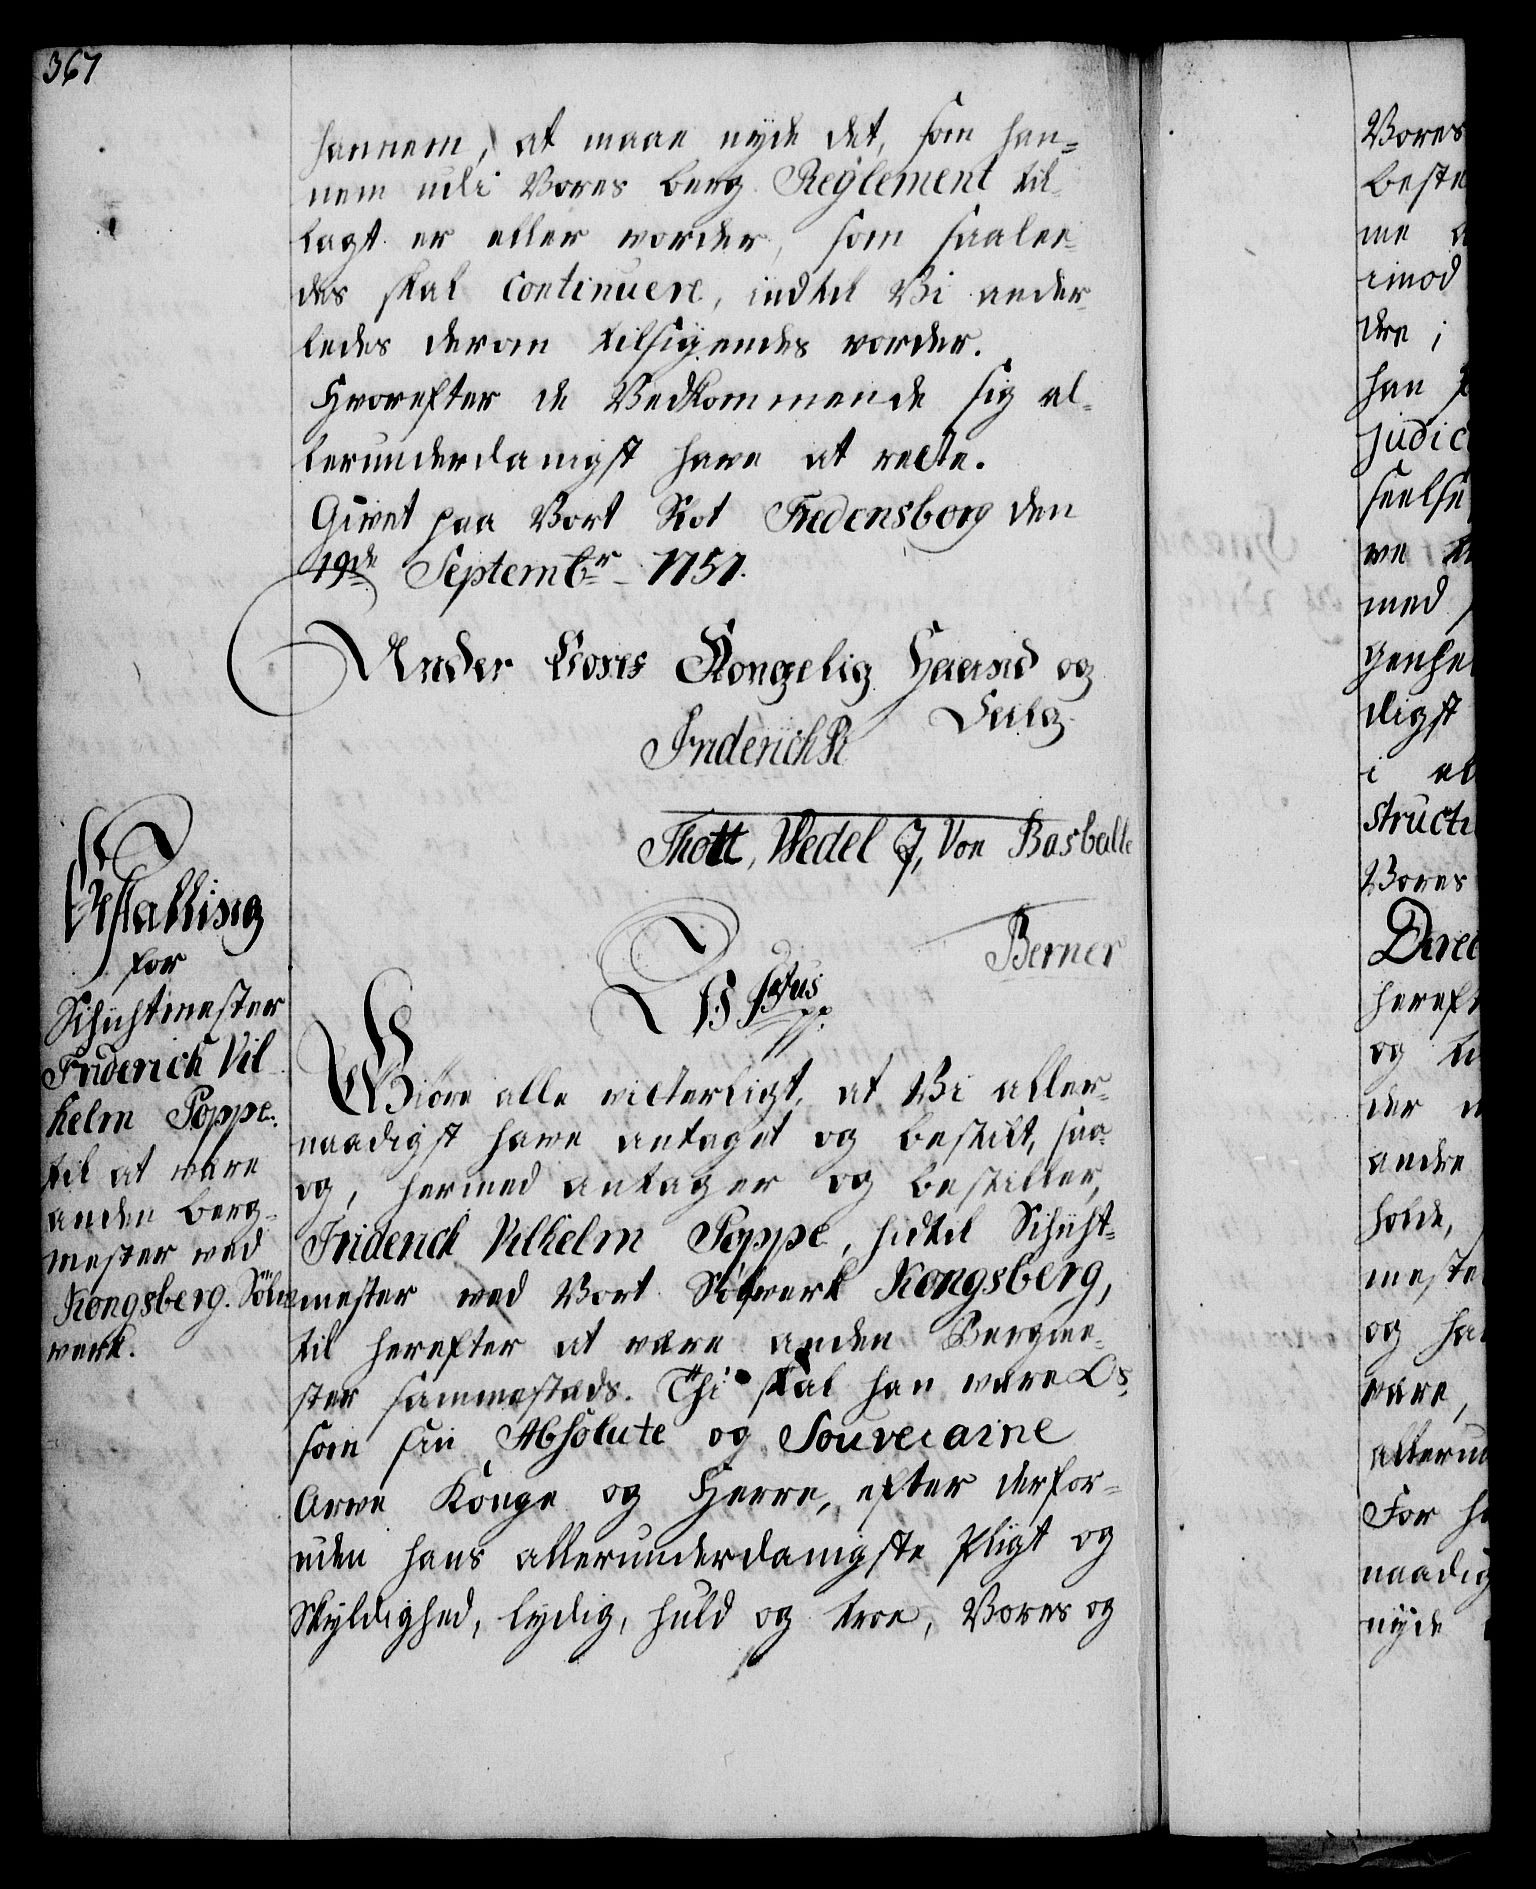 367
hannem, at maae nyde det, som han-
nem udi Vores berg Reglement til-
lagt er eller vorder, som saalee-
des skal continuere, indtil Vi ander-
ledes derom tilsigendes vorder.
Hvorefter de Vedkommende sig al-
lerunderdanigst have at rette.
Givet paa Vort Slot Fredensborg den
19de Septembr 1751.
Under Vores Kongelig Haand og
Seilg.
Friderich R
Thott, Wedel J, Von Basballe
Berner
Bestalling
for
Schichtmester
Friderich Vil
helm Poppe.
til at være
anden berg-
mester ved
Kongsberg. Sölv
verk.
V F 5tus
pp.
Giöre alle vitterligt, at Vi aller-
naadigst have antaget og bestilt, saa
og, hermed antager og bestiller,
Friderich Vilhelm Poppe, hidtil Schicht-
mester ved Vort Sölverk Kongsberg,
til herefter at være anden Bergme-
ster sammesteds. Thi skal han være Os,
som sin Absolute og Souveraine
Arve Konge og Herre, efter derfor-
uden hans allerunderdanigste Pligt og
Skyldighed, lydig, huld og troe, Vores og
Vores
beste
me
imod
dre i
han
judic
seelse
ve
med
genhe
digst
i al
structi
Vores
Direc
hereft
og
der
andre
holde,
meste
og ha
være,
allerun
For h
naadig
nyde